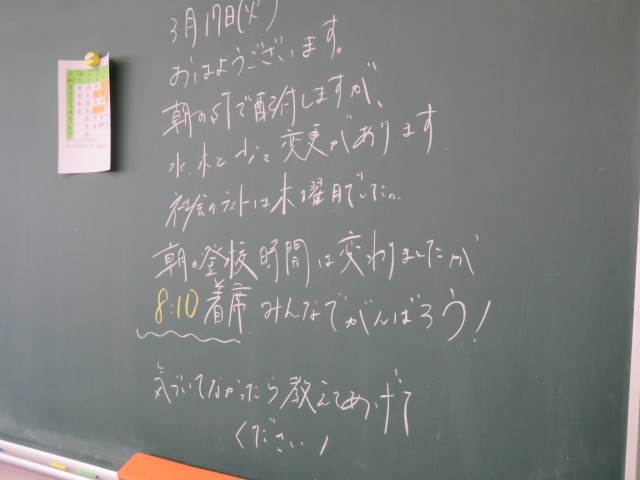 3月17日(火)
おはようございます。
朝のSTで配付しますが、
水、木と少々変更があります
社会のテストは木曜日でしたね
朝の登校時間は変わりましたが
8:10 着席 みんなでがんばろう!
気づいてなかったら教えてあげて
ください!